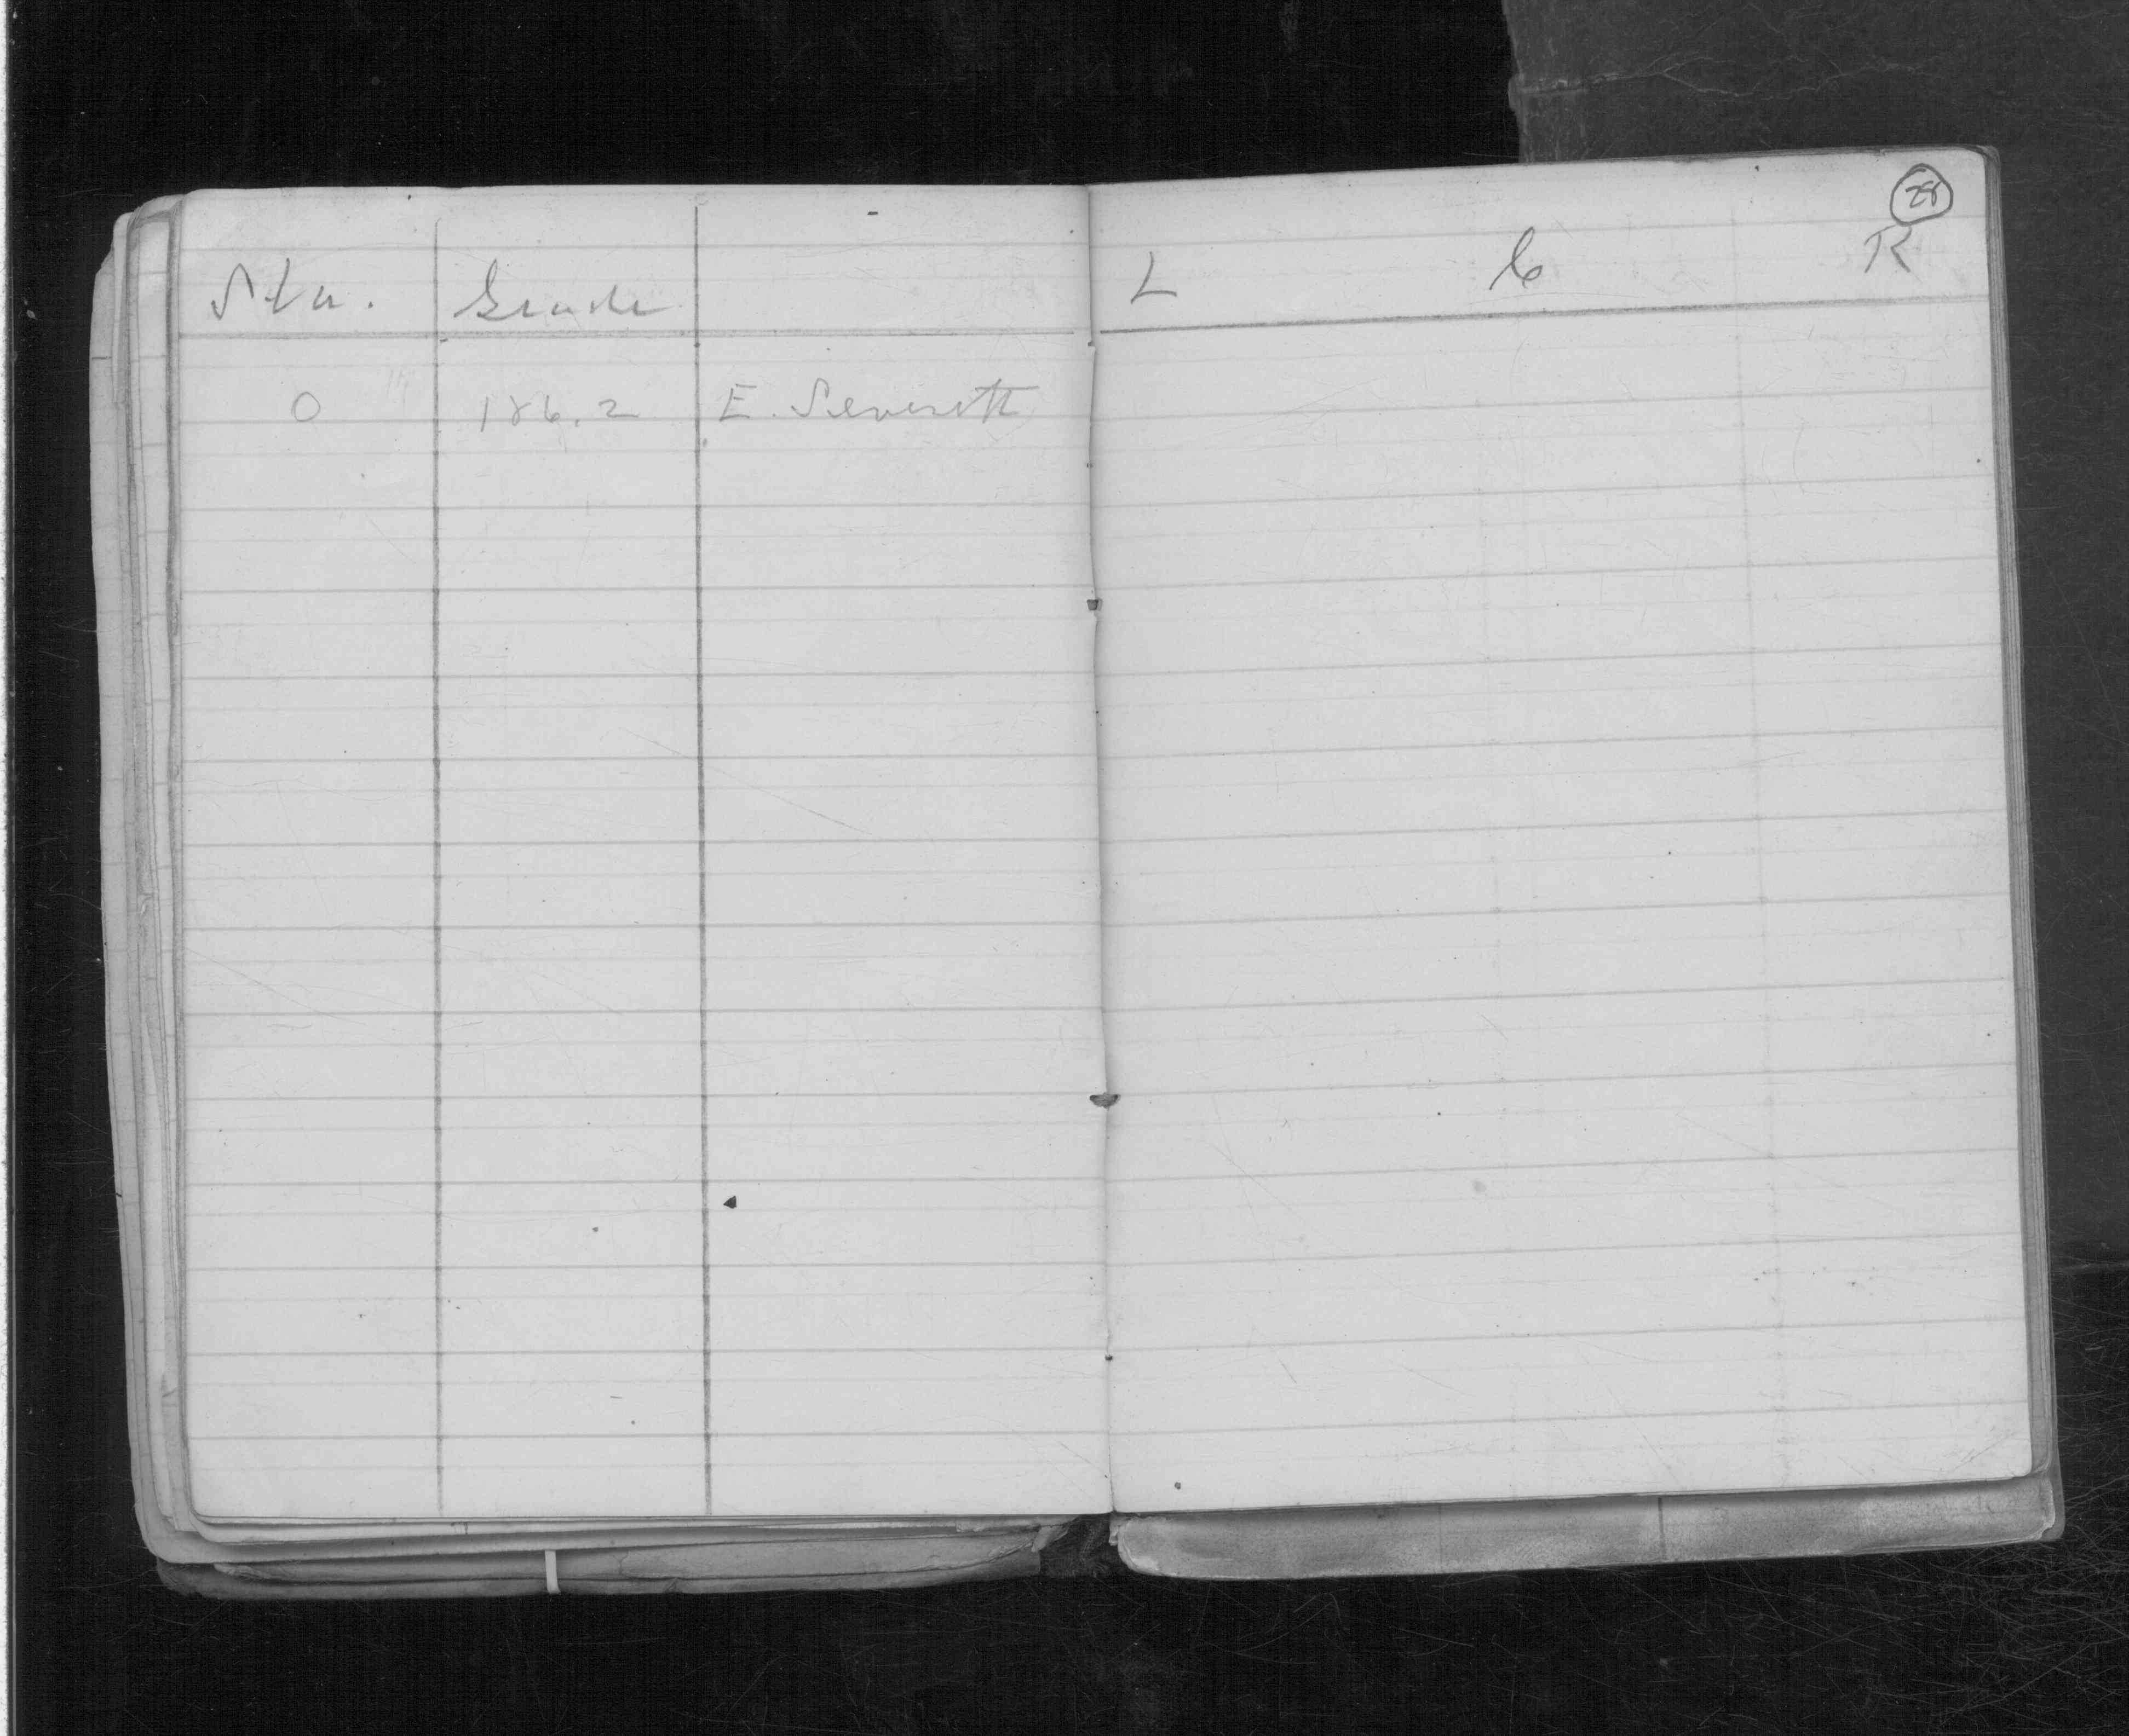 Sta. Grade
0 186.2 E.
28
L C R